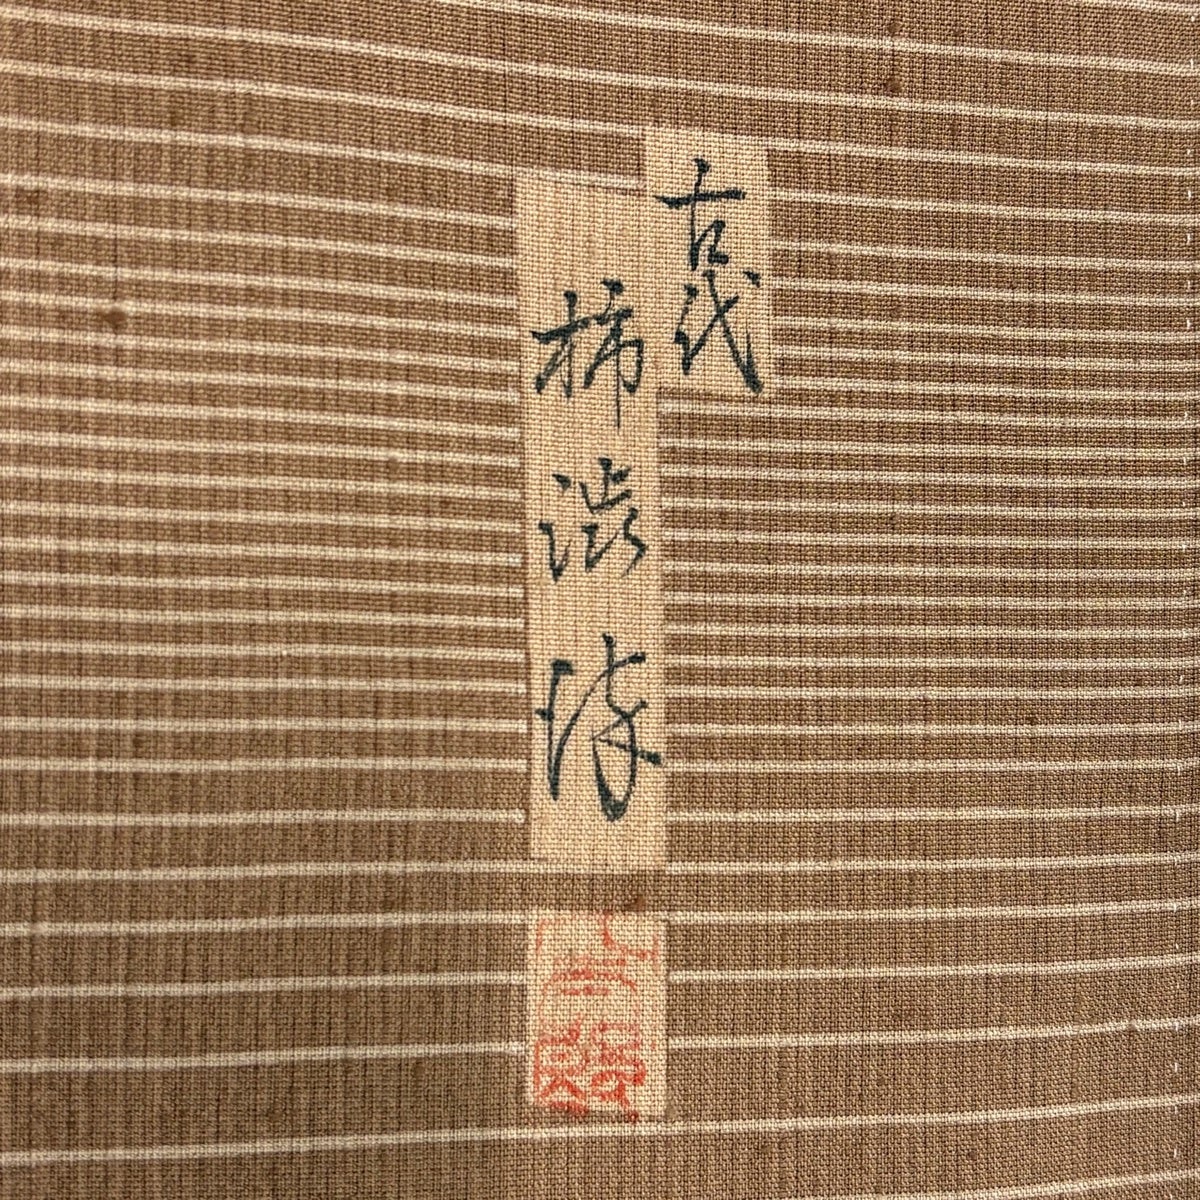 古代
柿渋染